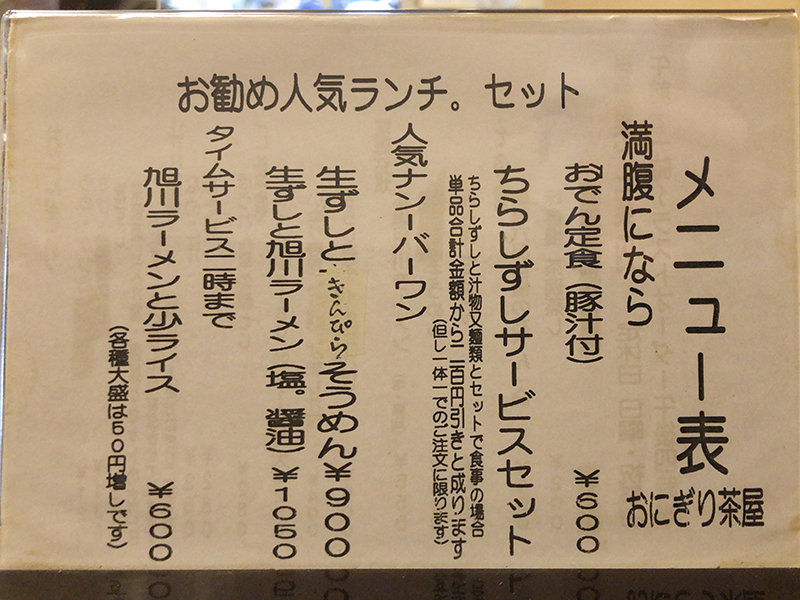 お勧め人気ランチ。セット
メニュー表
おにぎり茶屋
満腹になら
おでん定食（豚汁付） ￥600
ちらしずしサービスセット
ちらしずしと汁物又麺類とセットで食事の場合
単品合計金額から二百円引きと成ります
（但し一体一でのご注文に限ります）
人気ナンーバーワン
生ずしときんぴらそうめん￥900
生ずしと旭川ラーメン（塩。醤油）￥1050
タイムサービス二時まで
旭川ラーメンと少ライス ￥600
（各種大盛は50円増しです）